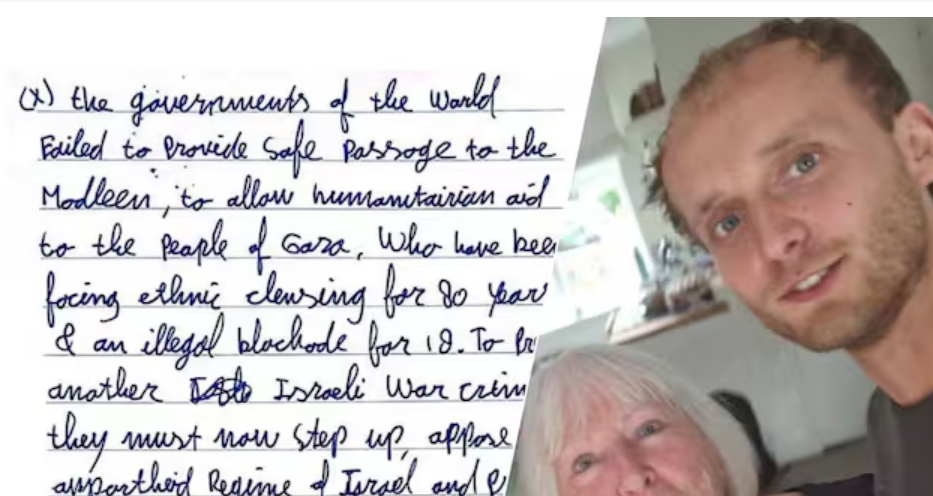 (X) the governments of the World
Failed to Provide Safe Passage to the
Madleen, to allow humanitairian aid
to the People of Gaza, Who have bee
facing ethnic clensing for 80 year
& an illegal blockade for 18. To Pr
another Israeli War crim
they must now step up, oppose
appartheid Regime of Israel and P